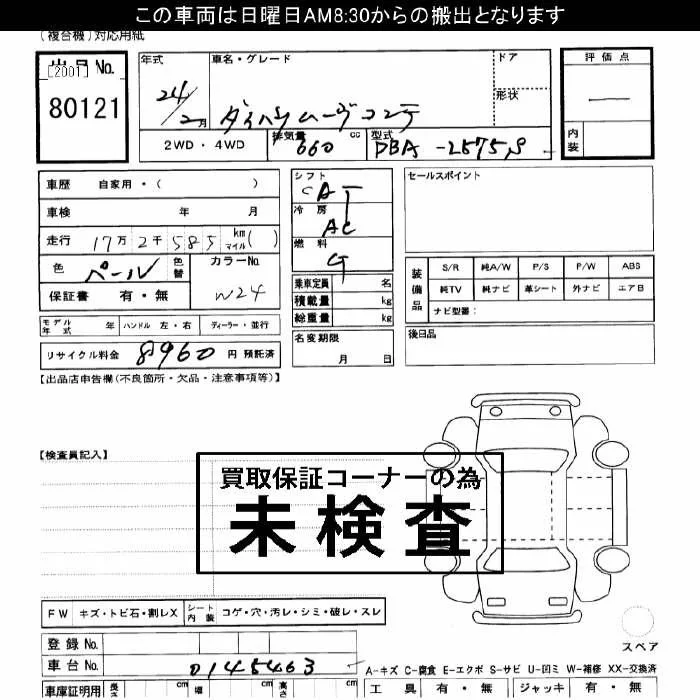 この車両は日曜日AM8:30からの搬出となります
(複合機)対応用紙
[2001] No.
80121
年式 車名・グレード ドア
24/2月 ダイハツムーヴコンテ 形状
評価点
―
内装
2WD・4WD 排気量 660 cc 型式 DBA-L575S
車歴 自家用・( )
車検 年 月
走行 17万2千585 km マイル( )
色 パール 色替 カラーNo. W24
保証書 有・無
シフト CAT
冷房 AC
燃料 G
乗車定員 名
積載量 kg
総重量 kg
セールスポイント
装備品 S/R 純A/W P/S P/W ABS
純TV 純ナビ 革シート 外ナビ エアB
ナビ型番:
モデル年式 年 ハンドル 左・右 ディーラー・並行
名変期限 月 日
後日品
リサイクル料金 8960 円 預託済
【出品店申告欄(不良箇所・欠品・注意事項等)】
【検査員記入】
買取保証コーナーの為
未検査
FW キズ・トビ石・割レX シート内装 コゲ・穴・汚レ・シミ・破レ・スレ
スペア
登録No.
車台No. 0145463
A-キズ C-腐食 E-エクボ S-サビ U-凹ミ W-補修 XX-交換済
車庫証明用 長さ cm 幅 cm 高さ cm
工具 有・無 ジャッキ 有・無